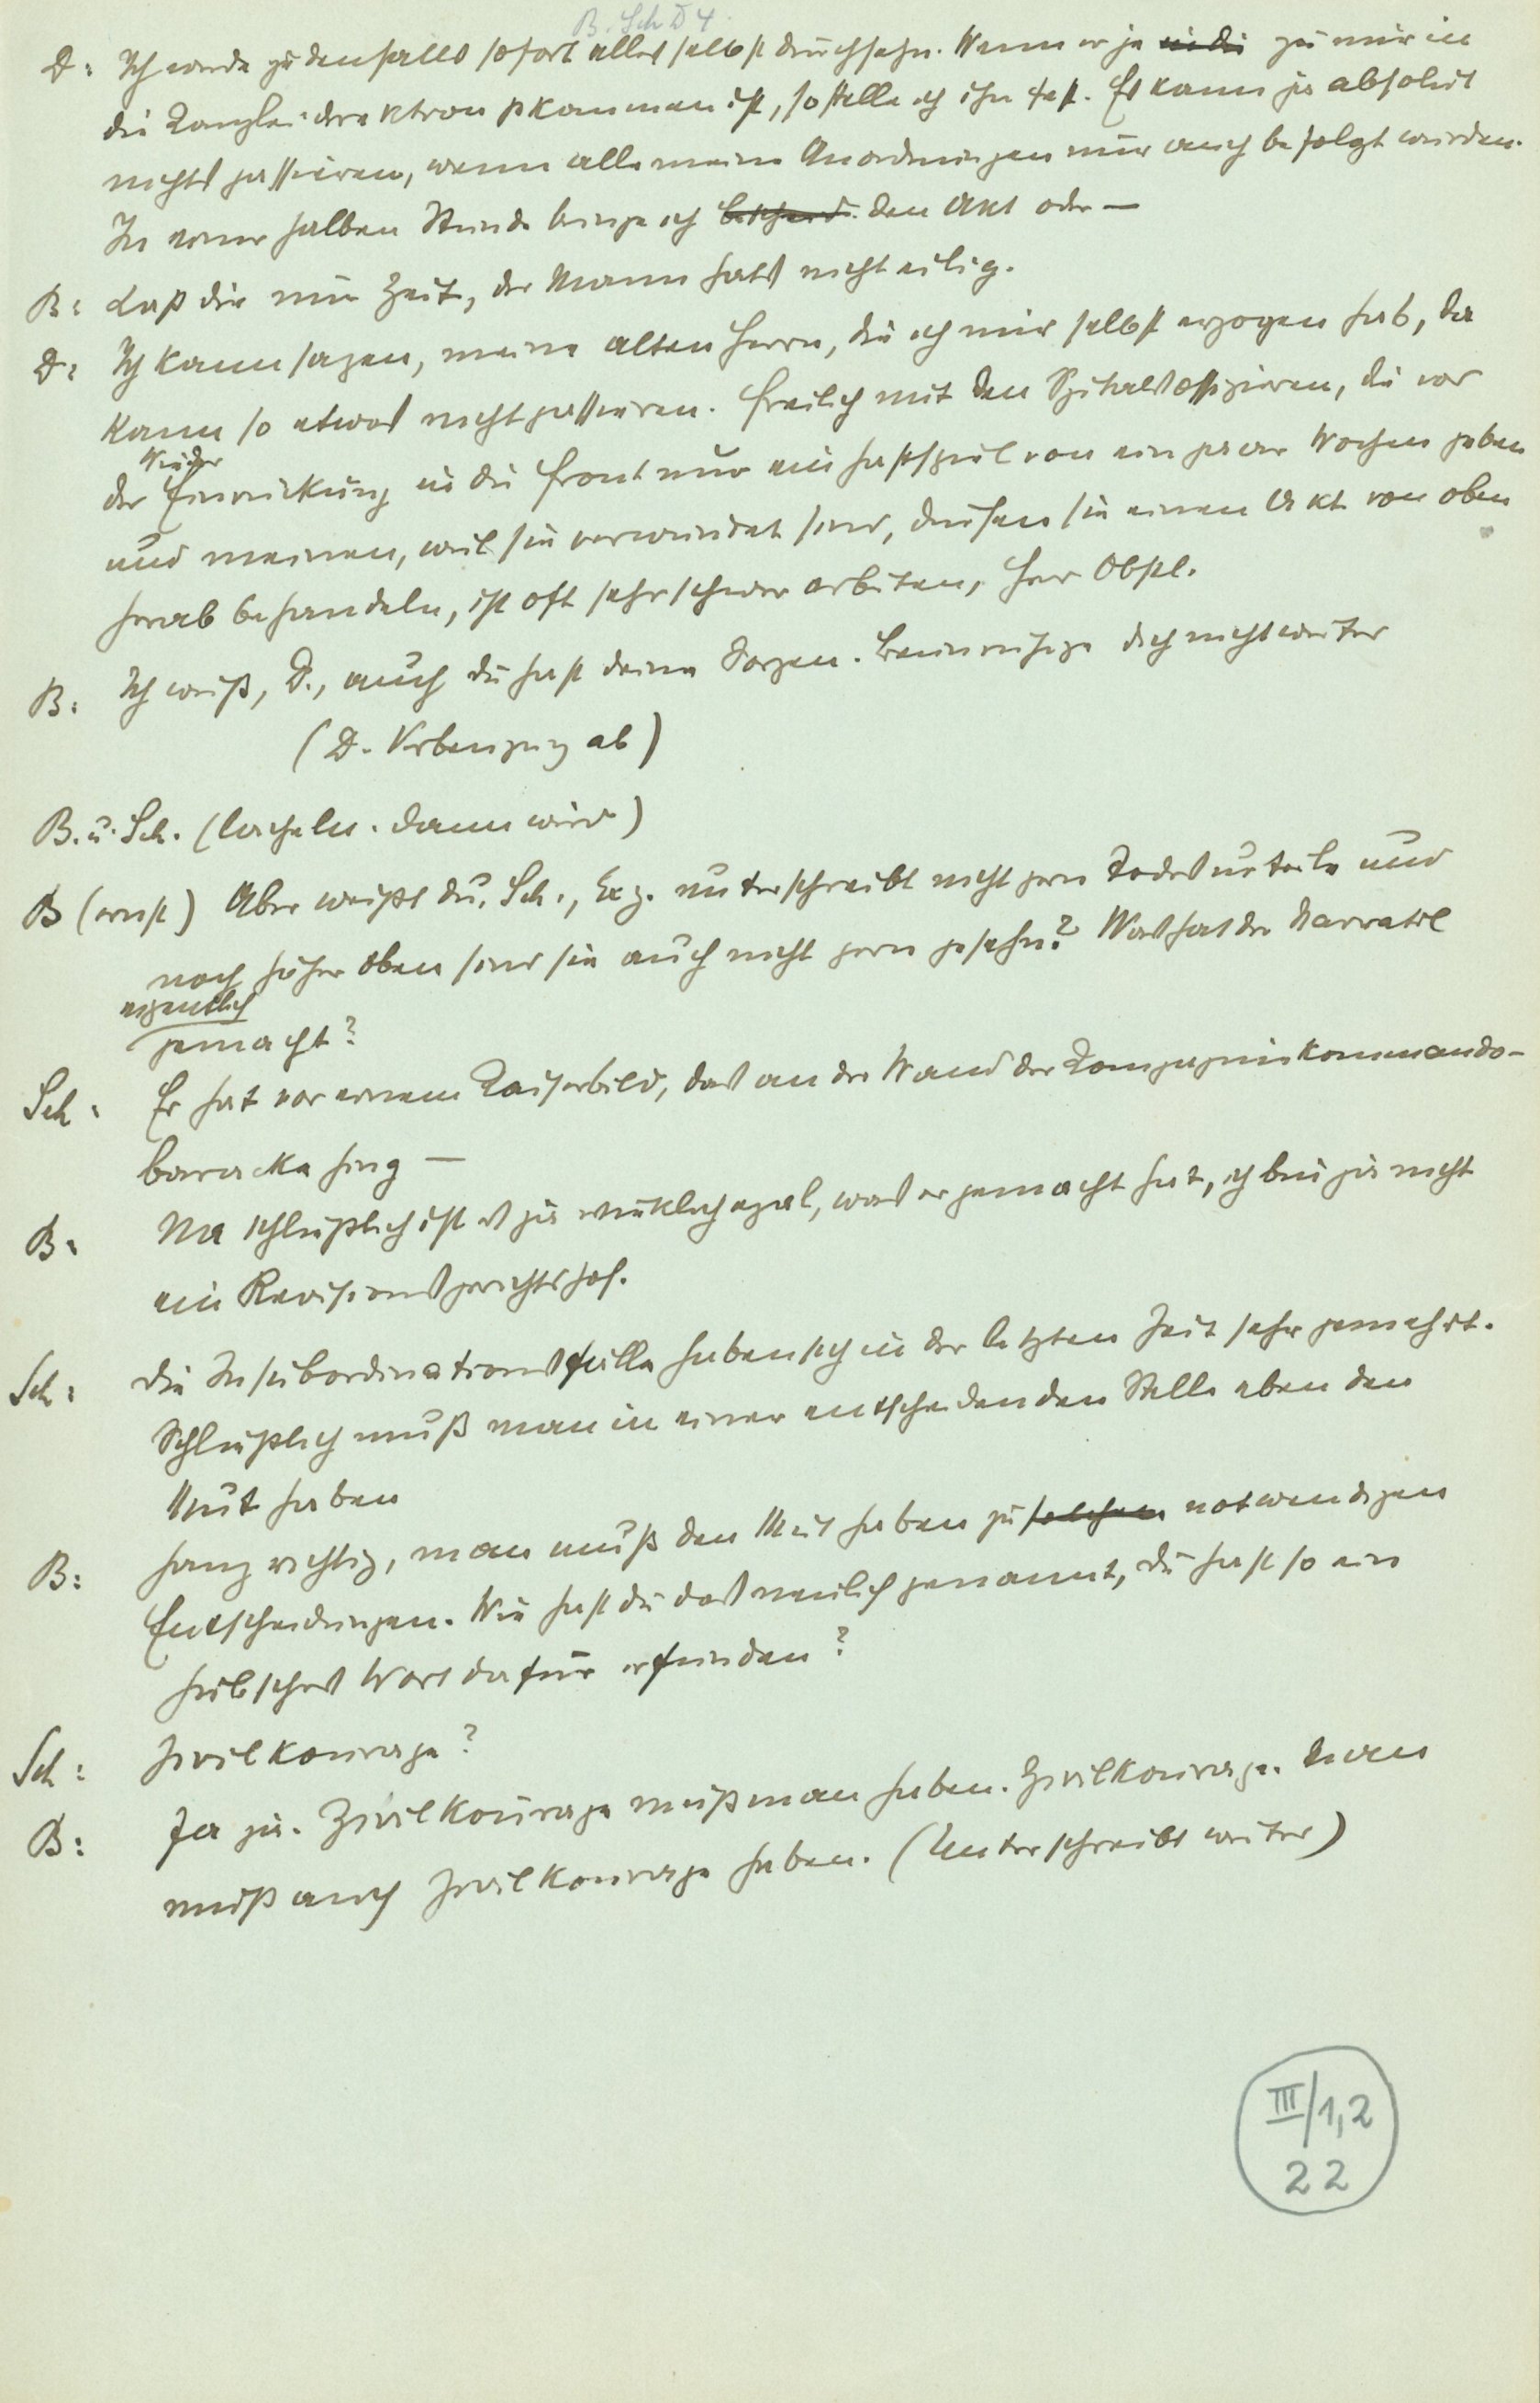 B. Sch D 4
D: Ich werde jedenfalls sofort alles selbst durchsehn. Wenn er je in die zu mir in
die Kanzleidirektion gekommen ist, so stelle ich ihn fest. Es kann ja absolut
nichts passieren, wenn alle meine Anordnungen nur auch befolgt würden.
In einer halben Stunde bringe ich den Akt oder —
B: Laß dir nur Zeit, der Mann hats nicht eilig.
D: Ich kann sagen, meine alten Herrn, die ich mir selbst erzogen hab, da
kann so etwas nicht passieren. Freilich mit den Spitalsoffizieren, die vor
Wieder
der Einrückung in die Front nur ein Gastspiel von ein paar Wochen geben
und meinen, weil sie verwundet sind, dürfen sie einen Akt von oben
herab behandeln, ist oft sehr schwer arbeiten, Herr Obstl.
B: Ich weiß, D., auch du hast deine Sorgen. Beunruhige dich nicht weiter
(D. Verbeugung ab)
B. u. Sch. (lächeln. dann wird)
B (ernst) Aber weißt du, Sch., Exz. unterschreibt nicht gern Todesurteile und
noch höher oben sind sie auch nicht gern gesehn? Was hat der Nawratil
eigentlich
gemacht?
Sch: Er hat vor einem Kaiserbild, das an der Wand der Kompagniekommando-
baracke hing —
B: Na schließlich ist es ja wirklich egal, was er gemacht hat, ich bin ja nicht
ein Revisionsgerichtshof.
Sch: Die Insubordinationsfälle haben sich in der letzten Zeit sehr gemehrt.
Schließlich muß man in einer entscheidenden Stelle eben den
Mut haben
B: Ganz richtig, man muß den Mut haben zu solchen notwendigen
Entscheidungen. Wie hast du das neulich genannt, du hast so ein
hübsches Wort dafür erfunden?
Sch: Zivilkourage?
B: Ja ja. Zivilkourage muß man haben. Zivilkourage. Man
muß auch Zivilkourage haben. (Unterschreibt weiter)
III/1,2
22